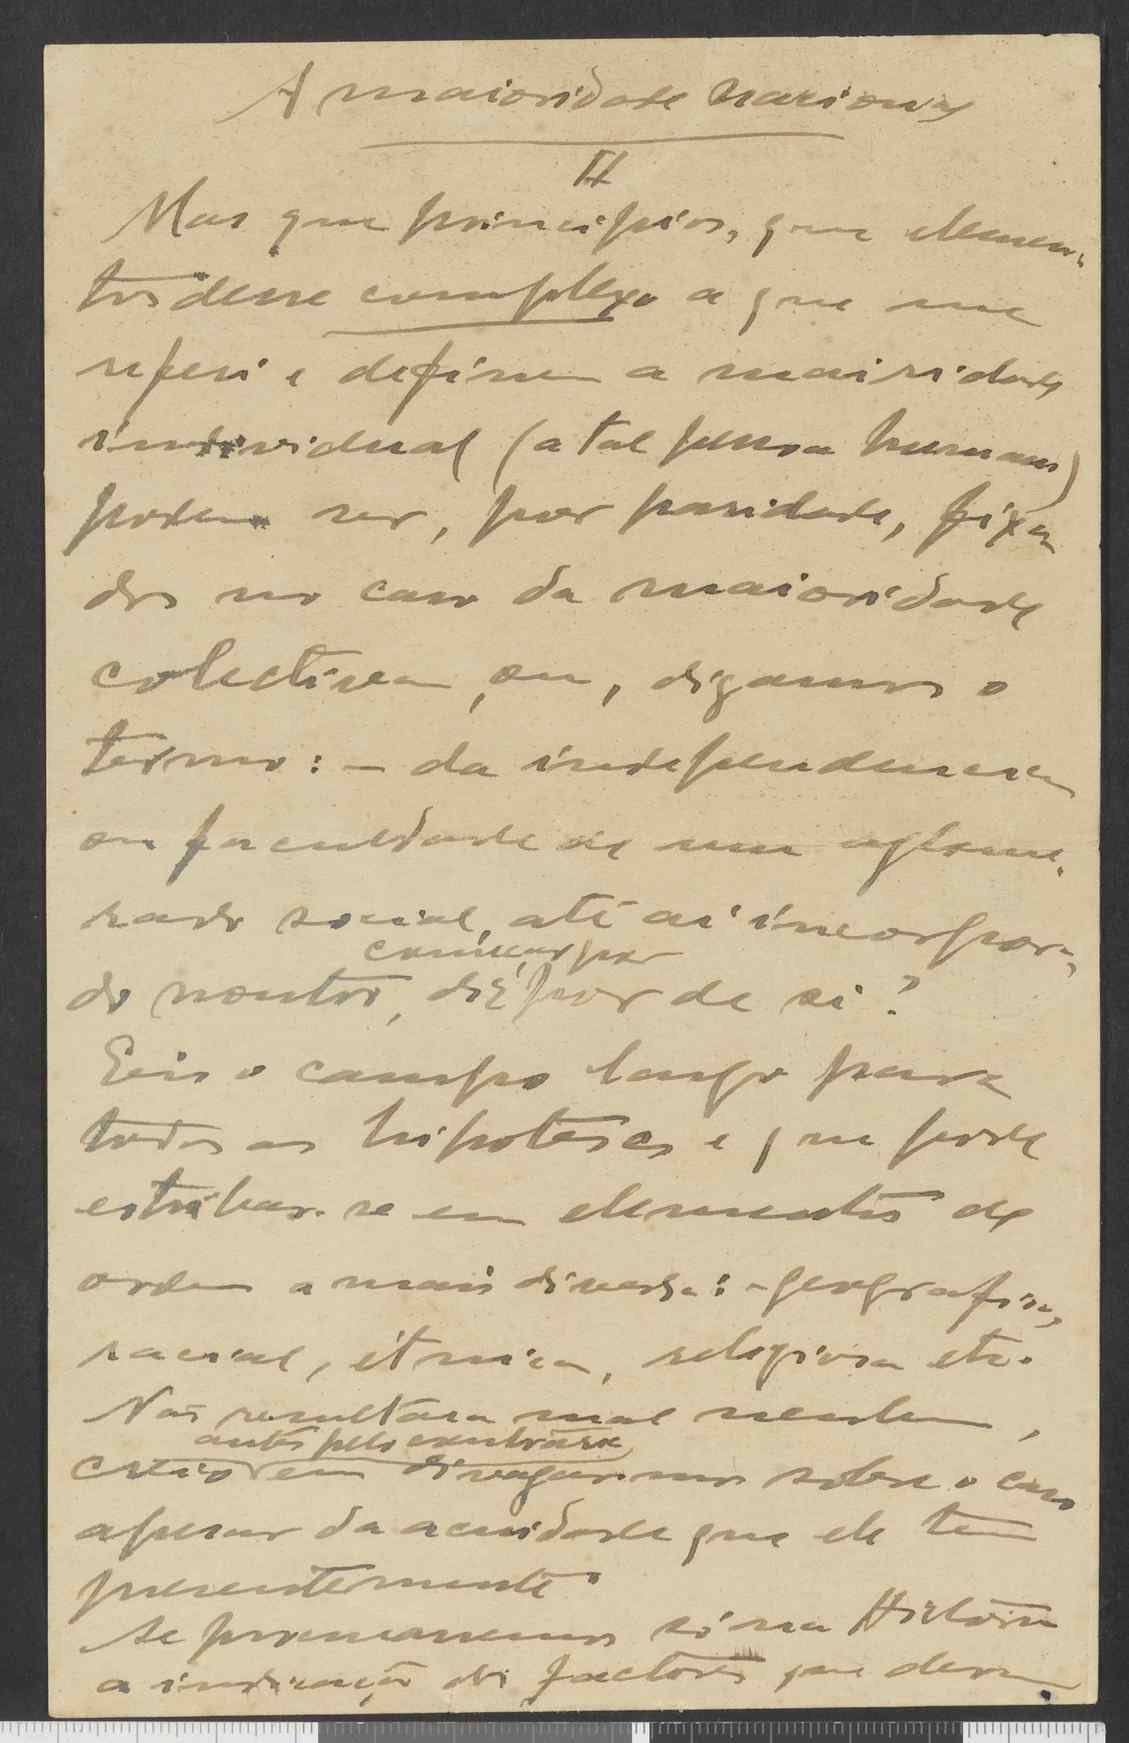 A maioridade nacional
II
Mas que principios, que elemen-
tos desse complexo a que me
referi e definem a maioridade
individual (a tal pessoa humana)
podem ser, por paridade, fixa
dos no caso da maioridade
colectiva, ou, digamos o
termo: — da independencia
ou faculdade de um aglome-
rado social, até aí incorpora-
do noutro, dispor de si?
Eis o campo largo para
todas as hipoteses e que pode
estribar-se em elementos de
ordem a mais diversa: - geografica,
racial, étnica, religiosa etc.
Não resultára mal nenhum,
antes pelo contrário
creio em divagarmos sobre o caso
apesar da acuidade que ele tem
presentemente.
Se procurarmos só na História
a indicação dos factores que devem